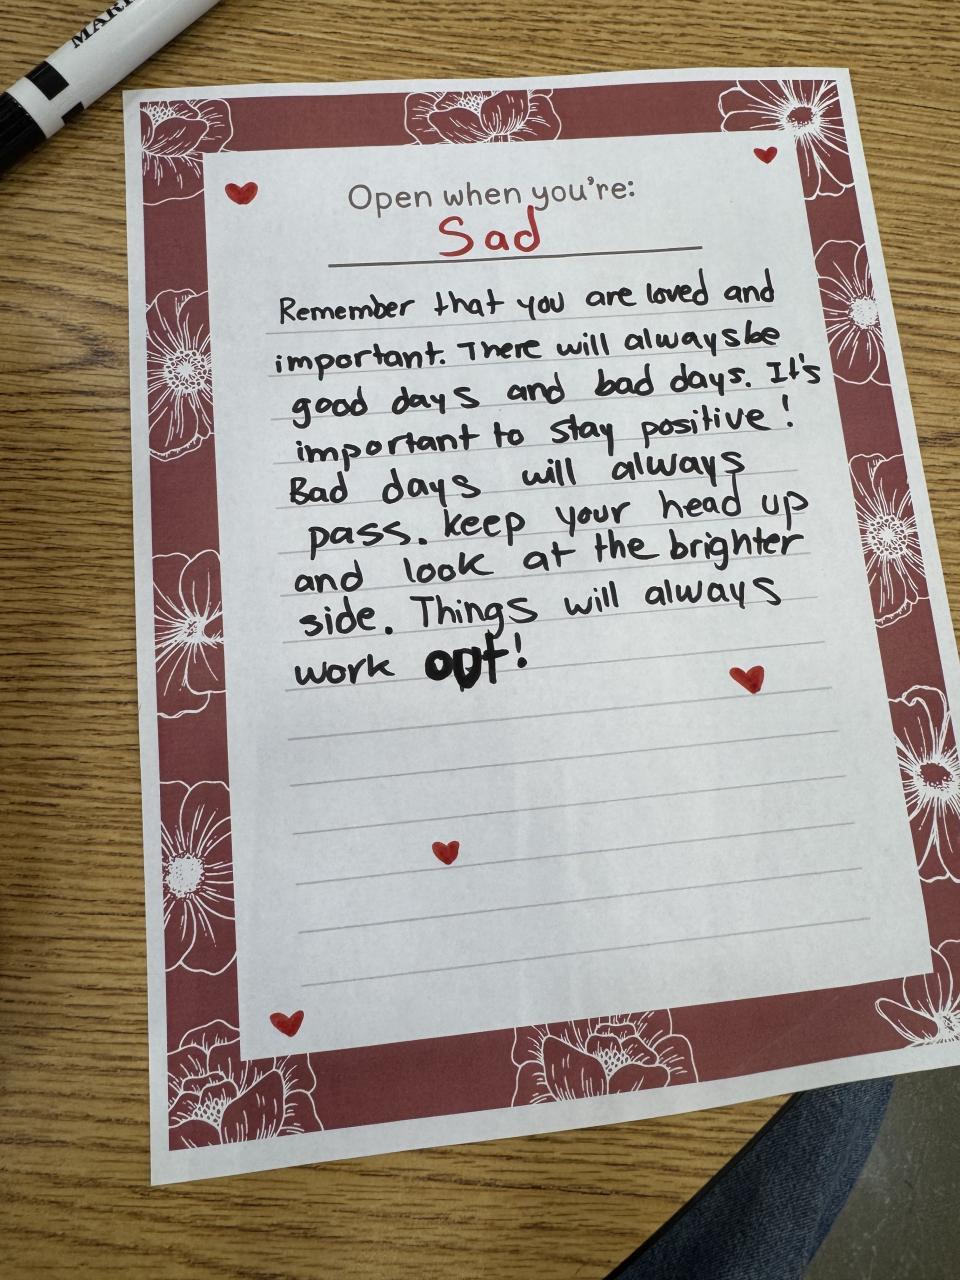 MAR
Open when you're:
Sad
Remember that you are loved and
important. There will always be
good days and bad days. It's
important to stay positive!
Bad days will always
pass. keep your head up
and look at the brighter
side. Things will always
work out!